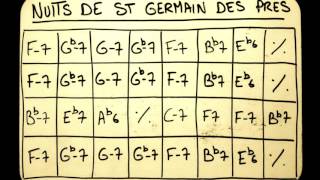 NUITS DE ST GERMAIN DES PRES
F-7 G♭-7 G-7 G♭-7 F-7 B♭7 E♭6 ٪
F-7 G♭-7 G-7 G♭-7 F-7 B♭7 E♭6 ٪
B♭-7 E♭7 A♭6 ٪ C-7 F7 F-7 B♭7
F-7 G♭-7 G-7 G♭-7 F-7 B♭7 E♭6 ٪